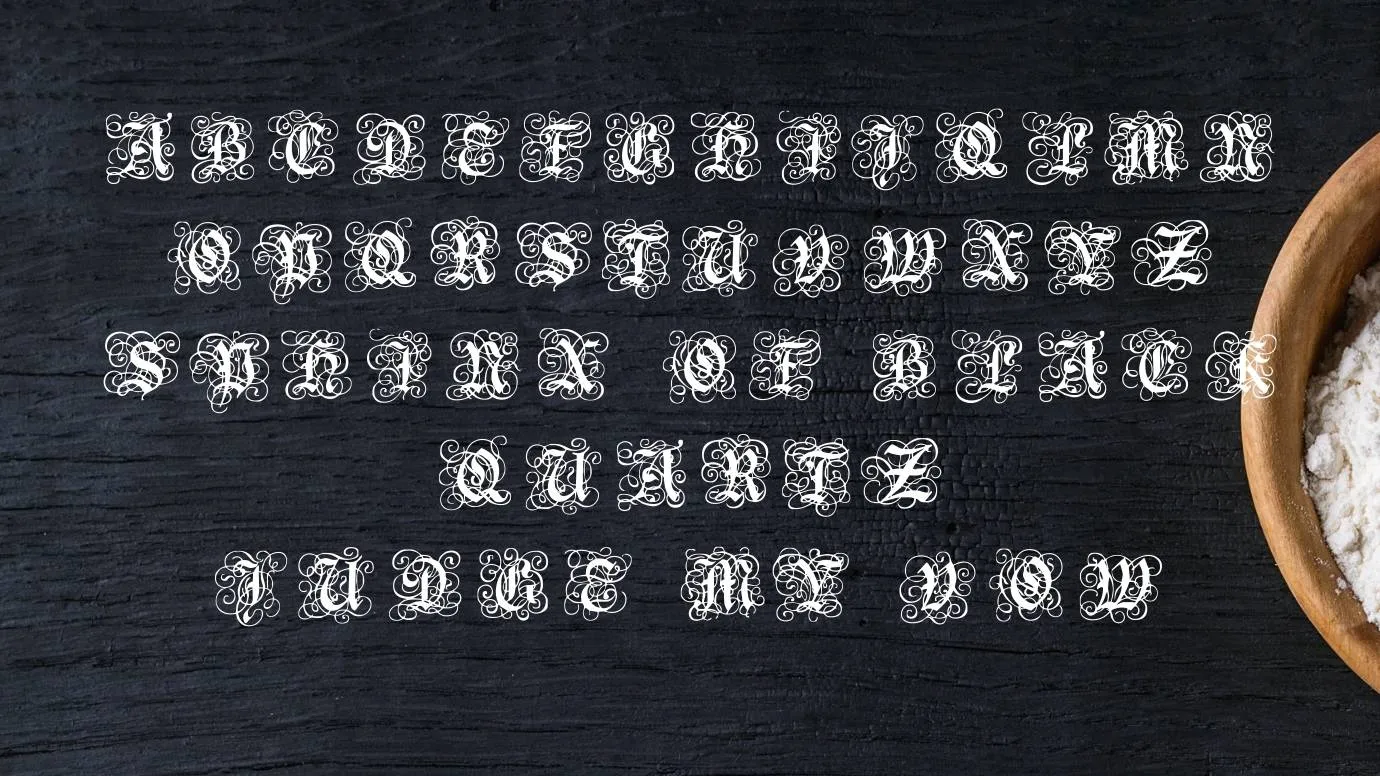 A B C D E F G H I J Q L M N
O P Q R S T U V W X Y Z
SPHINX OF BLACK
QUARTZ
JUDGE MY VOW